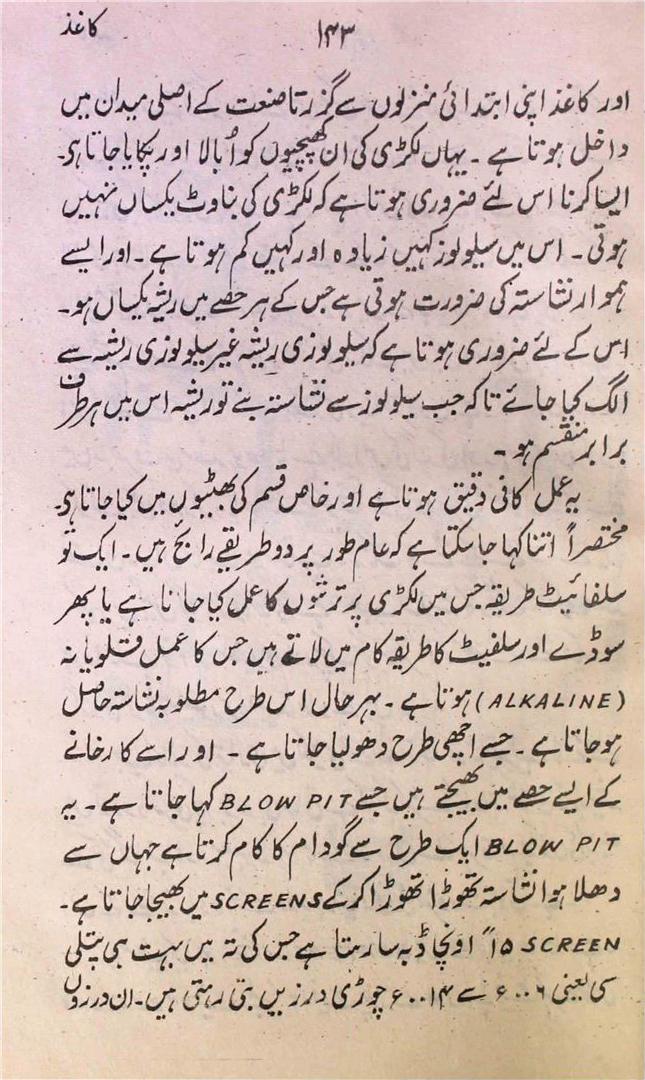 کاغذ
۱۴۳
اور کاغذ اپنی ابتدائی منزلوں سے گزرتا صنعت کے اصلی میدان میں
داخل ہوتا ہے ۔ یہاں لکڑی کی ان کھپچیوں کو اُبالا اور پکایا جاتا ہے۔
ایسا کرنا اس لئے ضروری ہوتا ہے کہ لکڑی کی بناوٹ یکساں نہیں
ہوتی ۔ اس میں سیلولوز کہیں زیادہ اور کہیں کم ہوتا ہے ۔ اور ایسے
ہموار نشاستہ کی ضرورت ہوتی ہے جس کے ہر حصے میں ریشہ یکساں ہو ۔
اس کے لئے ضروری ہوتا ہے کہ سیلولوزی ریشہ غیر سیلولوزی ریشہ سے
الگ کیا جائے تاکہ جب سیلولوز سے نشاستہ بنے تو ریشہ اس میں ہر طرف
برابر منقسم ہو ۔
یہ عمل کافی دقیق ہوتا ہے اور خاص قسم کی بھٹیوں میں کیا جاتا ہے۔
مختصراً اتنا کہا جا سکتا ہے کہ عام طور پر دو طریقے رائج ہیں ۔ ایک تو
سلفائیٹ طریقہ جس میں لکڑی پر ترشوں کا عمل کیا جاتا ہے یا پھر
سوڈے اور سلفیٹ کا طریقہ کام میں لاتے ہیں جس کا عمل قلویانہ
(ALKALINE) ہوتا ہے ۔ بہر حال اس طرح مطلوبہ نشاستہ حاصل
ہو جاتا ہے ۔ جسے اچھی طرح دھو لیا جاتا ہے ۔ اور اسے کارخانے
کے ایسے حصے میں بھیجتے ہیں جسے BLOW PIT کہا جاتا ہے ۔ یہ
BLOW PIT ایک طرح سے گودام کا کام کرتا ہے جہاں سے
دھلا ہوا نشاستہ تھوڑا تھوڑا کر کے SCREENS میں بھیجا جاتا ہے ۔
SCREEN ۱۵" اونچا ڈبہ سا رہتا ہے جس کی تہ میں بہت ہی پتلی
سی یعنی ۰۰۶ء سے ۰۱۴ء چوڑی درزیں بنی رہتی ہیں ۔ ان درزوں